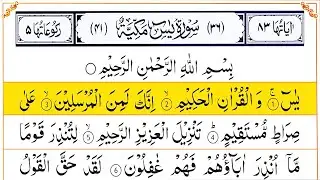 اٰیَاتُهَا ٨٣ (٣٦) سُوْرَةُ یٰسٓ مَكِّیَّةٌ (٤١) رُكُوْعَاتُهَا ٥
بِسْمِ اللّٰهِ الرَّحْمٰنِ الرَّحِیْمِ
یٰسٓ ۝1 وَ الْقُرْاٰنِ الْحَكِیْمِ ۝2 اِنَّكَ لَمِنَ الْمُرْسَلِیْنَ ۝3 عَلٰی
صِرَاطٍ مُّسْتَقِیْمٍ ۝4 تَنْزِیْلَ الْعَزِیْزِ الرَّحِیْمِ ۝5 لِتُنْذِرَ قَوْمًا
مَّاۤ اُنْذِرَ اٰبَآؤُهُمْ فَهُمْ غٰفِلُوْنَ ۝6 لَقَدْ حَقَّ الْقَوْلُ